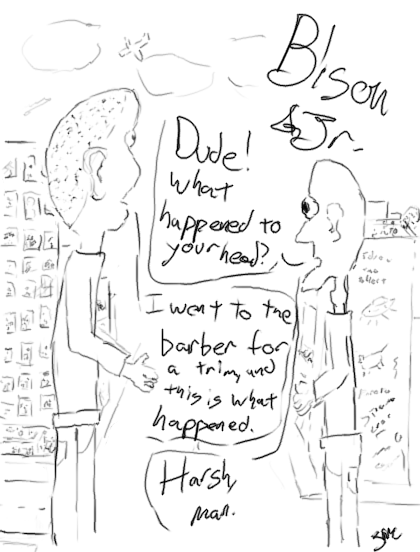 Bison
& Jr.
Dude!
What
happened to
your head?
I went to the
barber for
a trim, and
this is what
happened.
Harsh,
man.